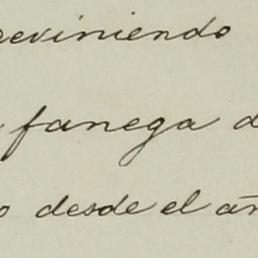 reviniendo
fanega d
o desde el añ